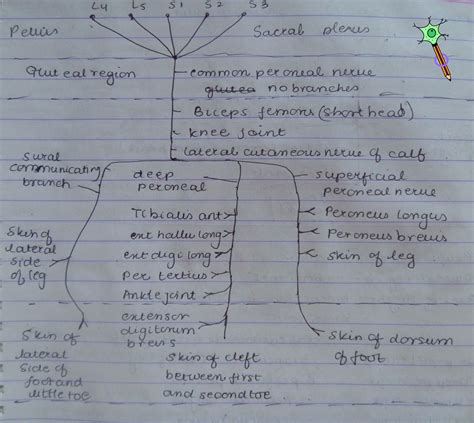 L4 L5 S1 S2 S3
Pelvis
Sacral plexus
Gluteal region
common peroneal nerve
glutea no branches
Biceps femoris (short head)
knee joint
lateral cutaneous nerve of calf
sural
communicating
branch
deep
peroneal
superficial
peroneal nerve
Tibialis ant
ext hallu long
ext digi long
Per tertius
Ankle joint
extensor
digitorum
brevis
Peroneus longus
Peroneus brevis
skin of leg
skin of
lateral
side
of leg
skin of
lateral
side of
foot and
little toe
skin of cleft
between first
and second toe
skin of dorsum
of foot